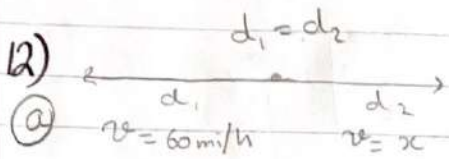 d₁ = d₂
12)
d₁ d₂
a v = 60 mi/h v = x